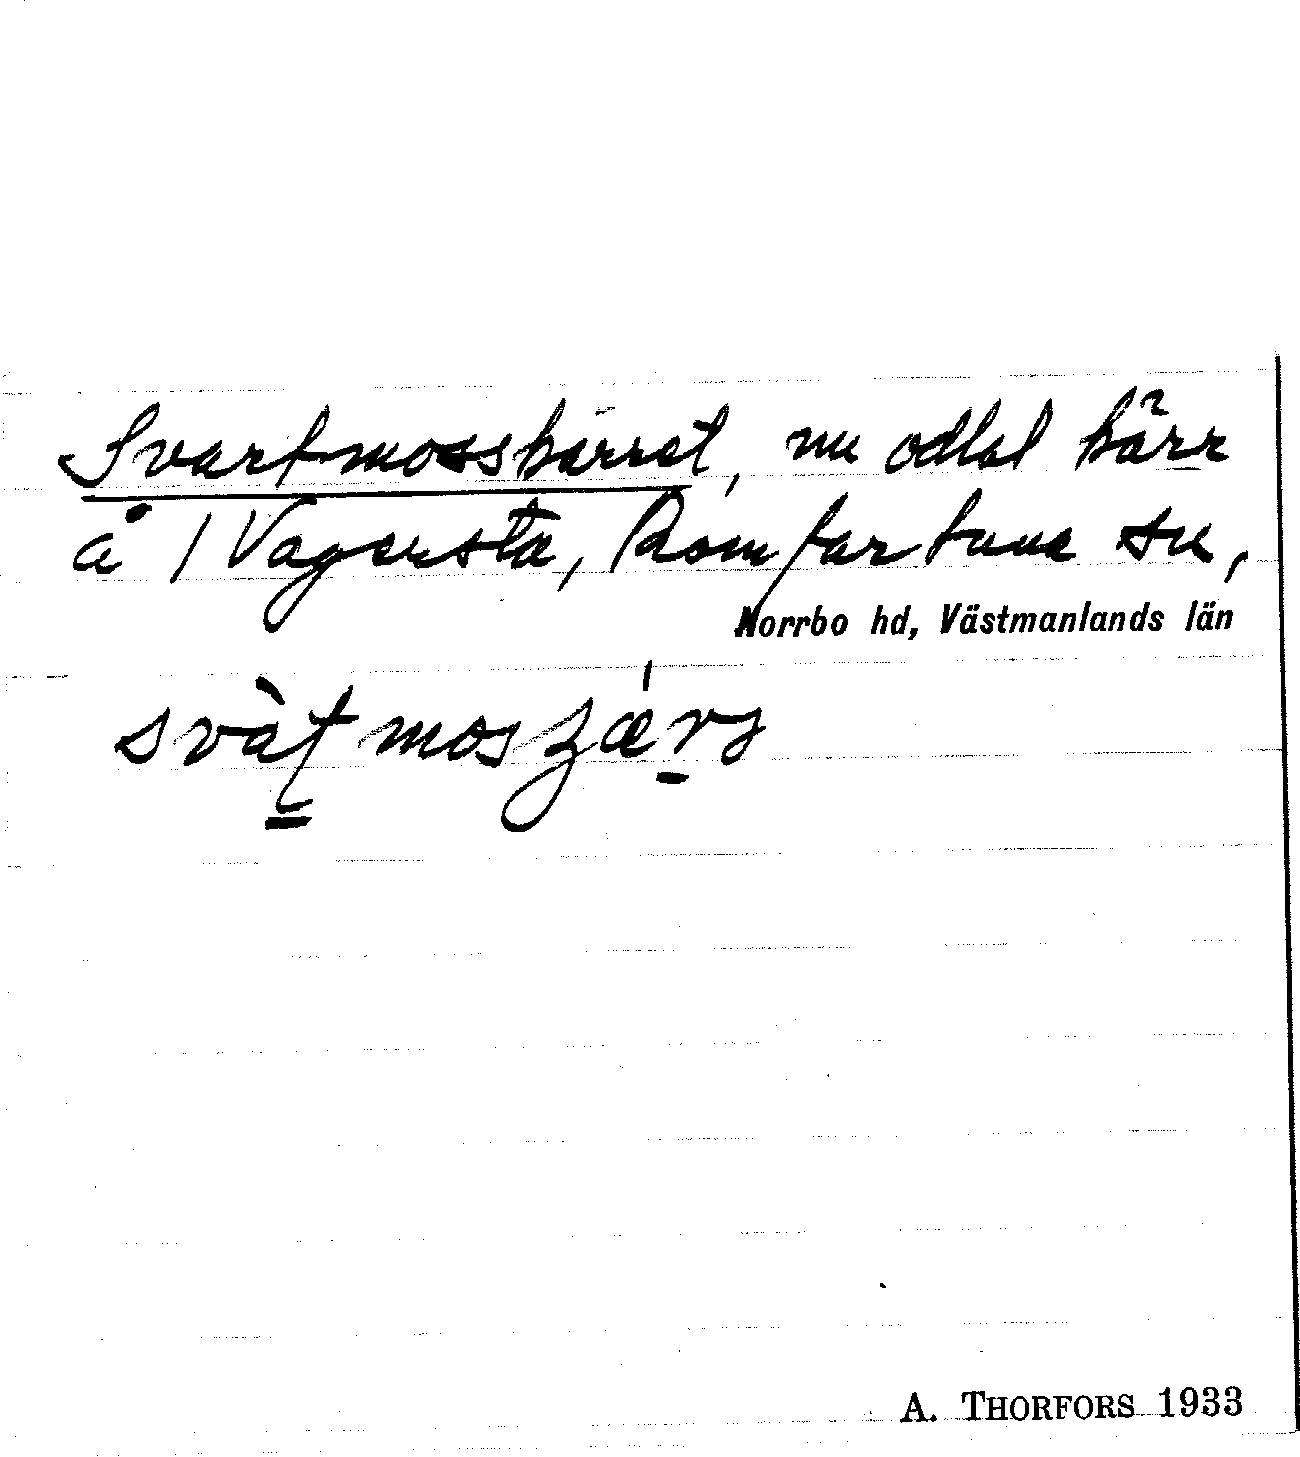 Svartmosskärret, nu odlat kärr
å Vagersta, Romfartuna sn,
Norrbo hd, Västmanlands län
A. THORFORS 1933